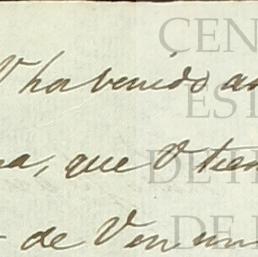 V ha venido a
a, que V tien
de V en un
CEN
EST
DE
DE